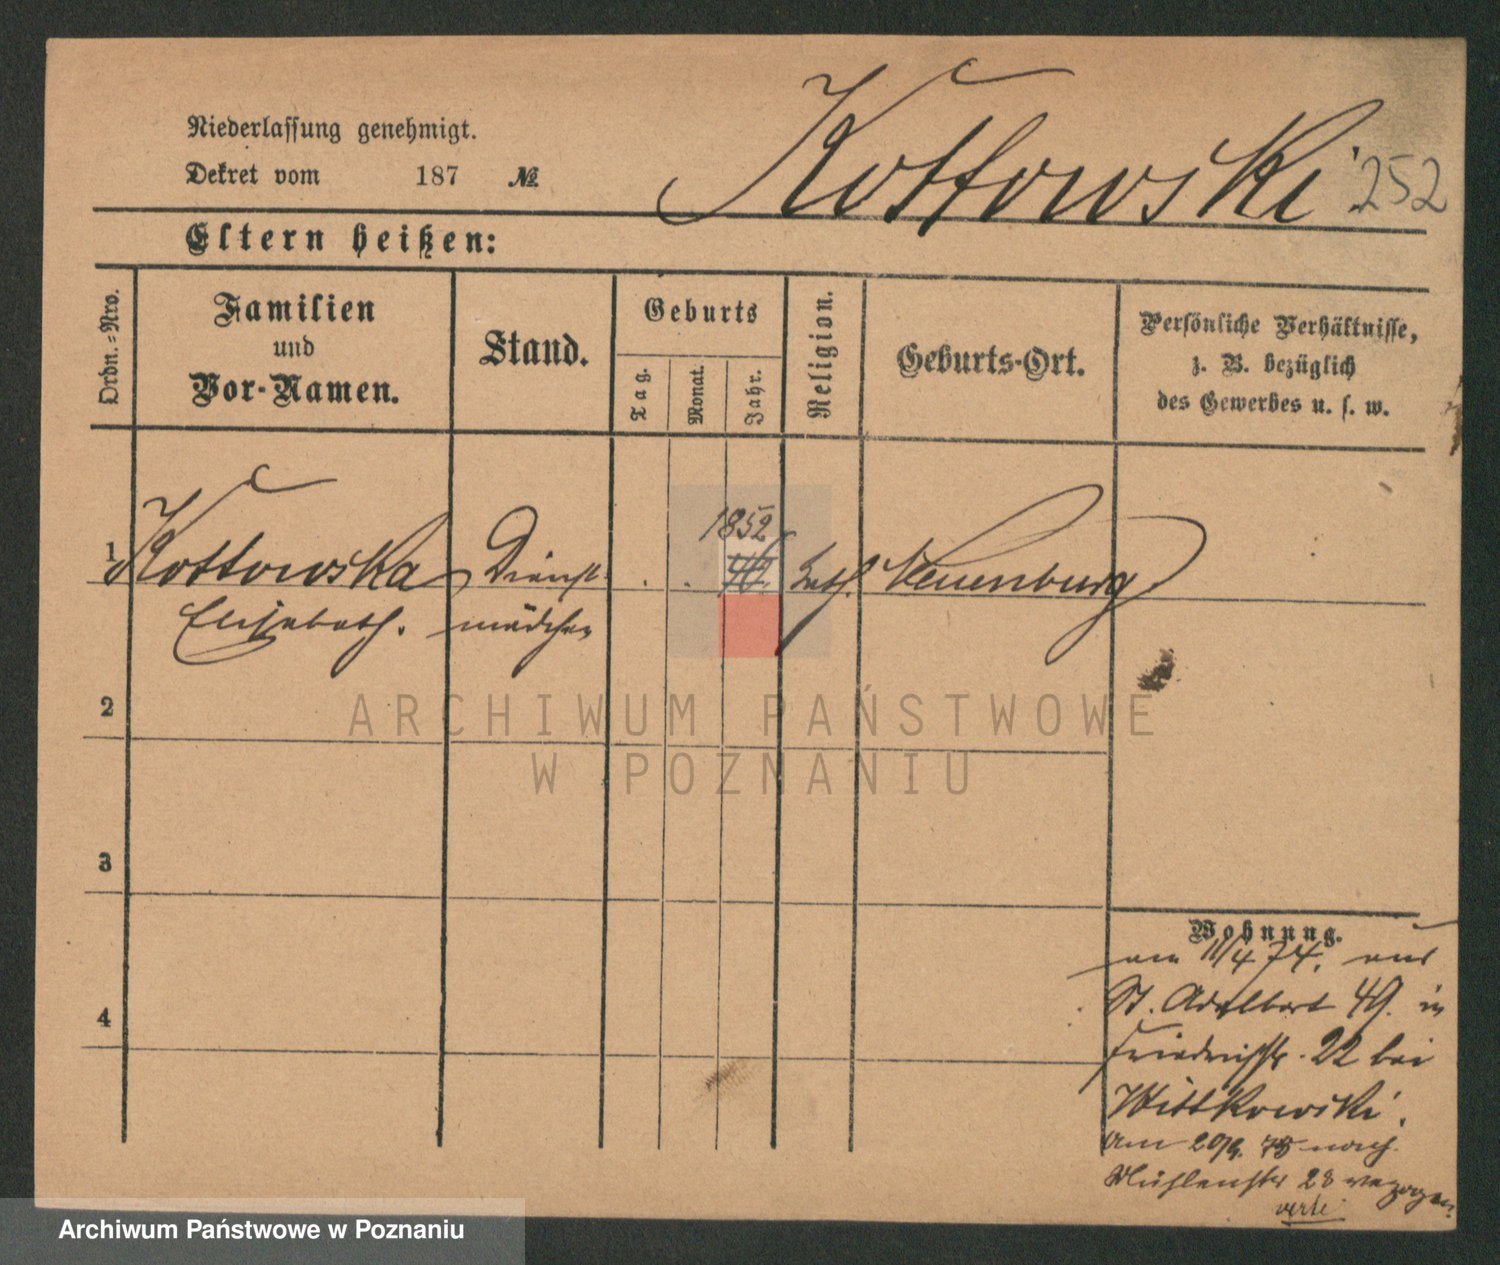 Niederlassung genehmigt.
Dekret vom 187 №
Kottowski 252
Eltern heißen:
Ordn.=Nro.
Familien
und
Vor-Namen.
Stand.
Geburts
Tag.
Monat.
Jahr.
Religion.
Geburts-Ort.
Persönliche Verhältnisse,
z. B. bezüglich
des Gewerbes u. s. w.
1852
1 Kottowska Dienst . . kath. Neuenburg
Elisabeth. mädchen
2
3
4
Wohnung.
am 11/4 74. aus
St. Adalbert 49. in
Friedrichstr. 22 bei
Wittkowski.
am 20/9. 75 nach
Mühlenstr 28 verzogen
verte
ARCHIWUM PAŃSTWOWE
W POZNANIU
Archiwum Państwowe w Poznaniu